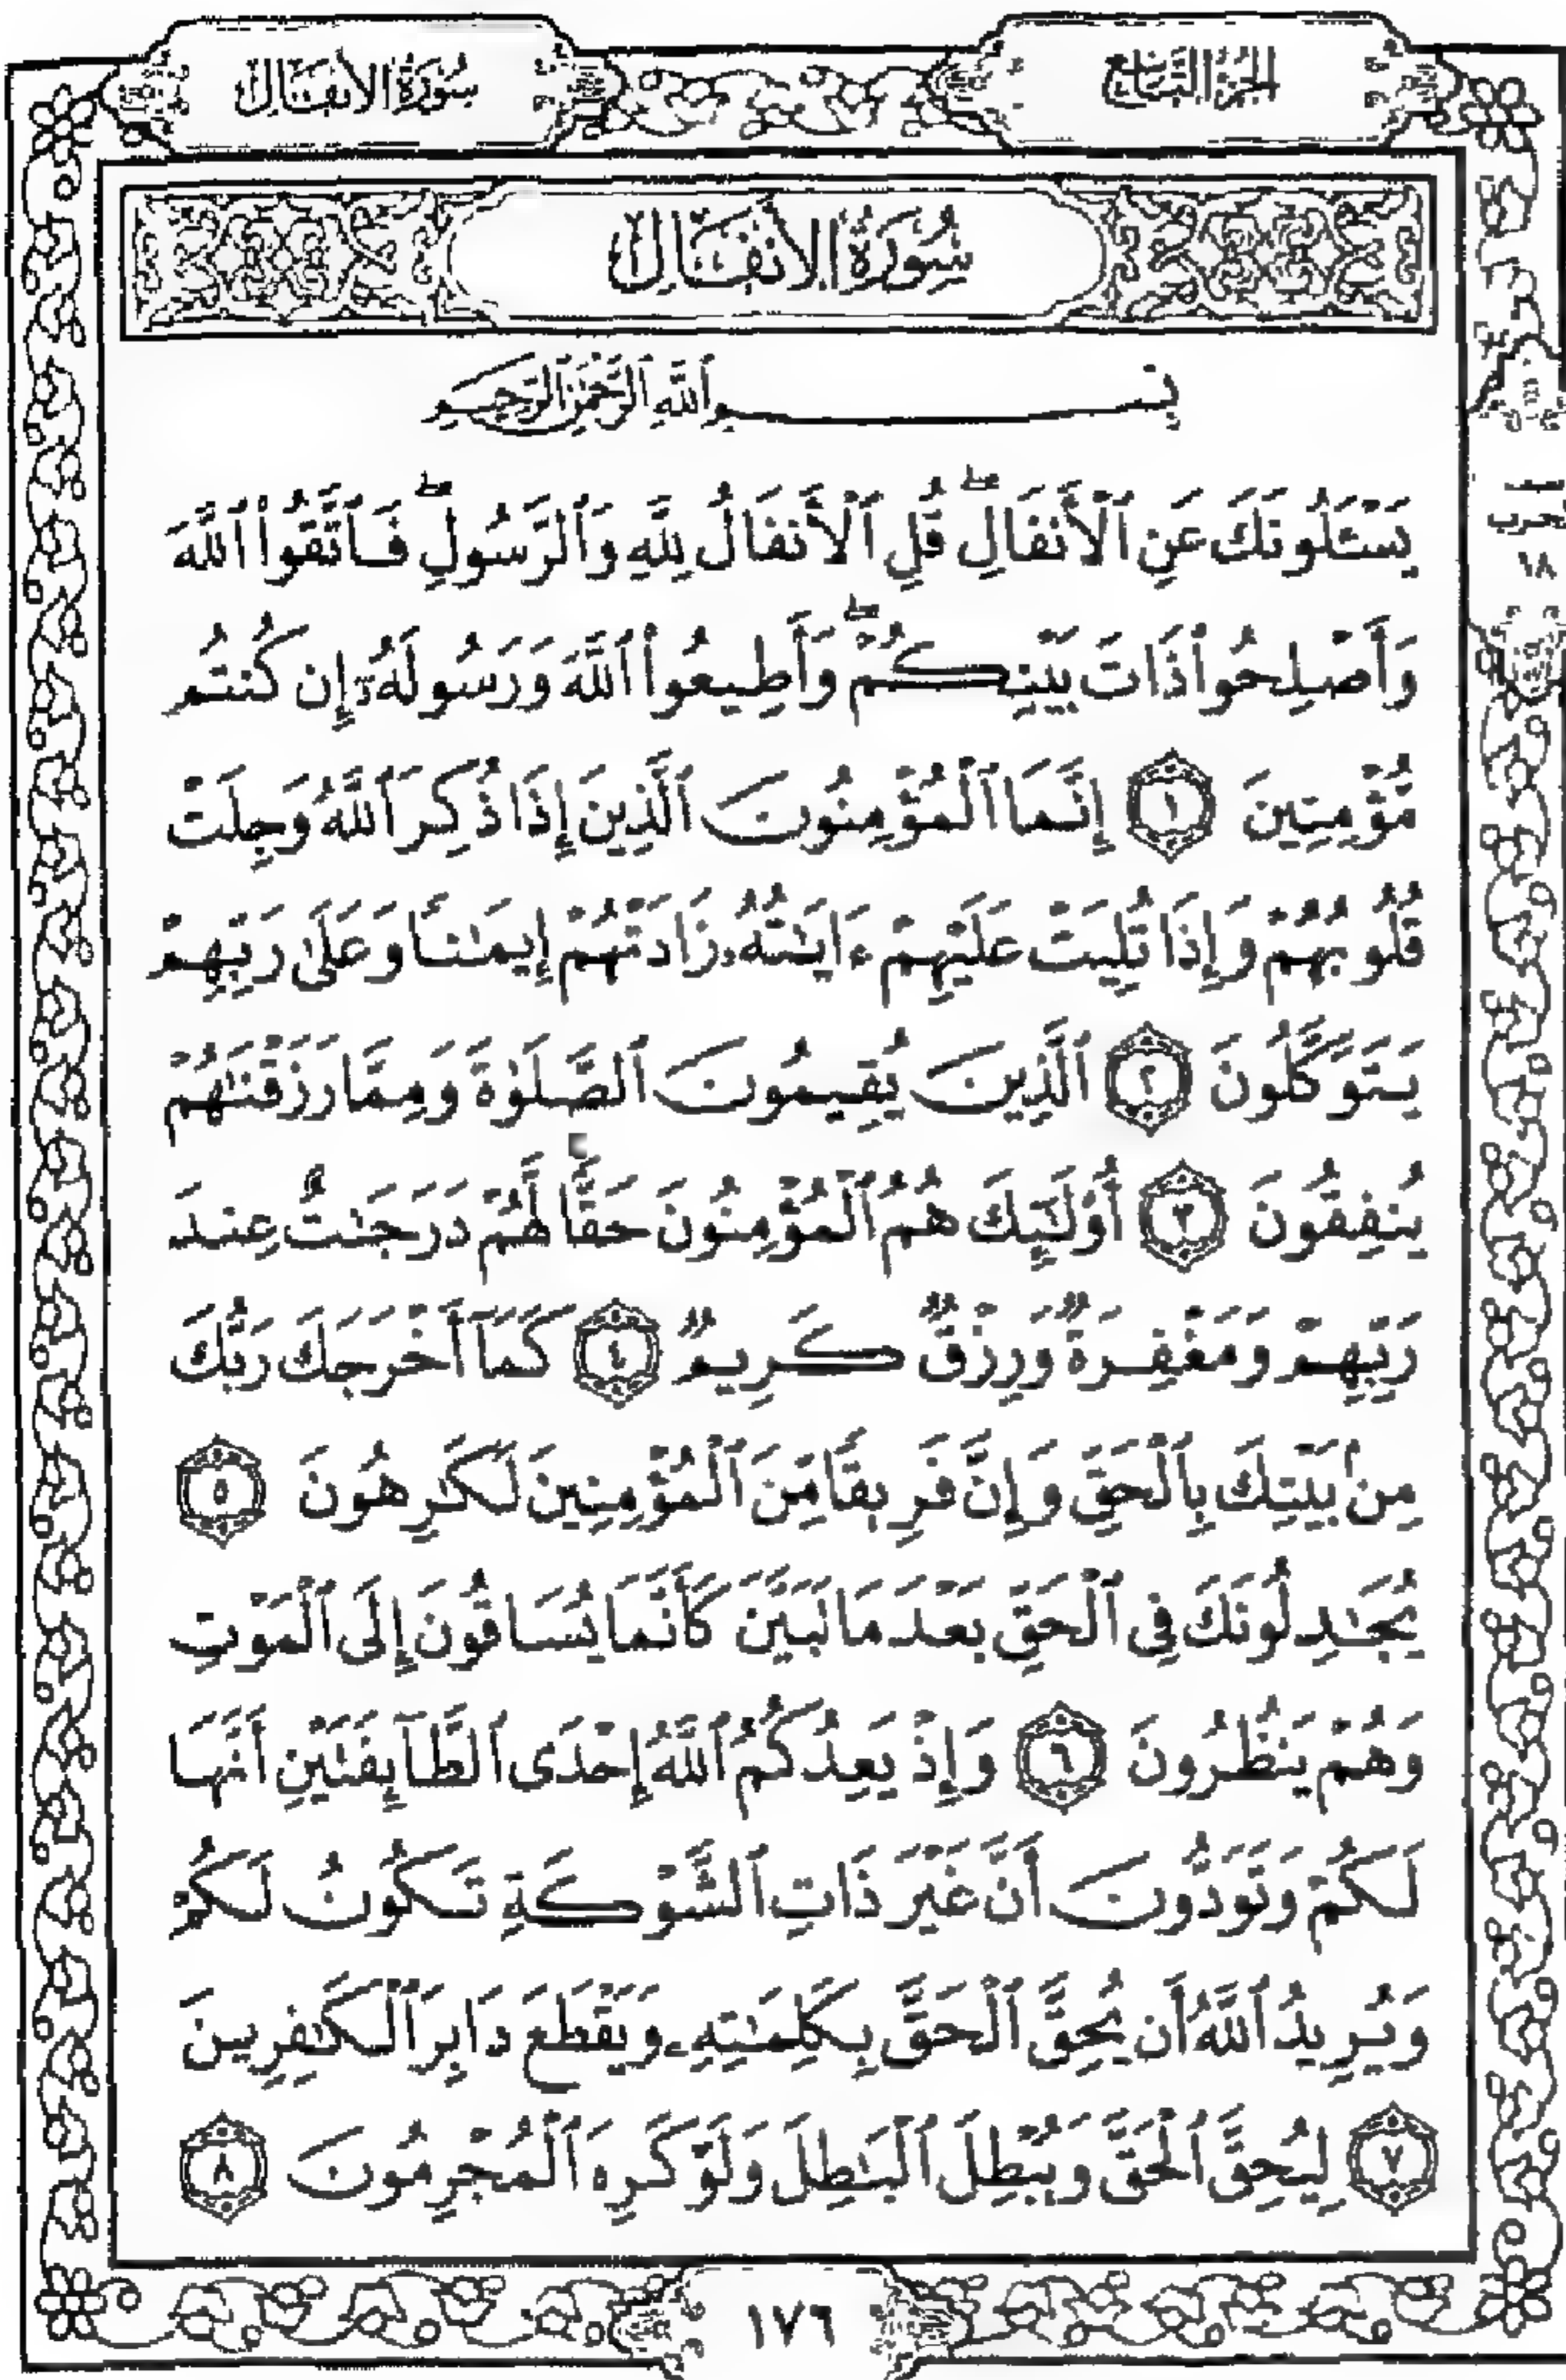 الجُزْءُ التَّاسِعُ
سُورَةُ الأَنفَالِ
سُورَةُ الأَنفَالِ
بِسْمِ ٱللَّهِ ٱلرَّحْمَٰنِ ٱلرَّحِيمِ
يَسْـَٔلُونَكَ عَنِ ٱلْأَنفَالِۖ قُلِ ٱلْأَنفَالُ لِلَّهِ وَٱلرَّسُولِۖ فَٱتَّقُوا۟ ٱللَّهَ
وَأَصْلِحُوا۟ ذَاتَ بَيْنِكُمْۖ وَأَطِيعُوا۟ ٱللَّهَ وَرَسُولَهُۥٓ إِن كُنتُم
مُّؤْمِنِينَ ١ إِنَّمَا ٱلْمُؤْمِنُونَ ٱلَّذِينَ إِذَا ذُكِرَ ٱللَّهُ وَجِلَتْ
قُلُوبُهُمْ وَإِذَا تُلِيَتْ عَلَيْهِمْ ءَايَٰتُهُۥ زَادَتْهُمْ إِيمَٰنًا وَعَلَىٰ رَبِّهِمْ
يَتَوَكَّلُونَ ٢ ٱلَّذِينَ يُقِيمُونَ ٱلصَّلَوٰةَ وَمِمَّا رَزَقْنَٰهُمْ
يُنفِقُونَ ٣ أُو۟لَٰٓئِكَ هُمُ ٱلْمُؤْمِنُونَ حَقًّا لَّهُمْ دَرَجَٰتٌ عِندَ
رَبِّهِمْ وَمَغْفِرَةٌ وَرِزْقٌ كَرِيمٌ ٤ كَمَآ أَخْرَجَكَ رَبُّكَ
مِنۢ بَيْتِكَ بِٱلْحَقِّ وَإِنَّ فَرِيقًا مِّنَ ٱلْمُؤْمِنِينَ لَكَٰرِهُونَ ٥
يُجَٰدِلُونَكَ فِى ٱلْحَقِّ بَعْدَ مَا تَبَيَّنَ كَأَنَّمَا يُسَاقُونَ إِلَى ٱلْمَوْتِ
وَهُمْ يَنظُرُونَ ٦ وَإِذْ يَعِدُكُمُ ٱللَّهُ إِحْدَى ٱلطَّآئِفَتَيْنِ أَنَّهَا
لَكُمْ وَتَوَدُّونَ أَنَّ غَيْرَ ذَاتِ ٱلشَّوْكَةِ تَكُونُ لَكُمْ
وَيُرِيدُ ٱللَّهُ أَن يُحِقَّ ٱلْحَقَّ بِكَلِمَٰتِهِۦ وَيَقْطَعَ دَابِرَ ٱلْكَٰفِرِينَ
٧ لِيُحِقَّ ٱلْحَقَّ وَيُبْطِلَ ٱلْبَٰطِلَ وَلَوْ كَرِهَ ٱلْمُجْرِمُونَ ٨
١٨
١٧٦